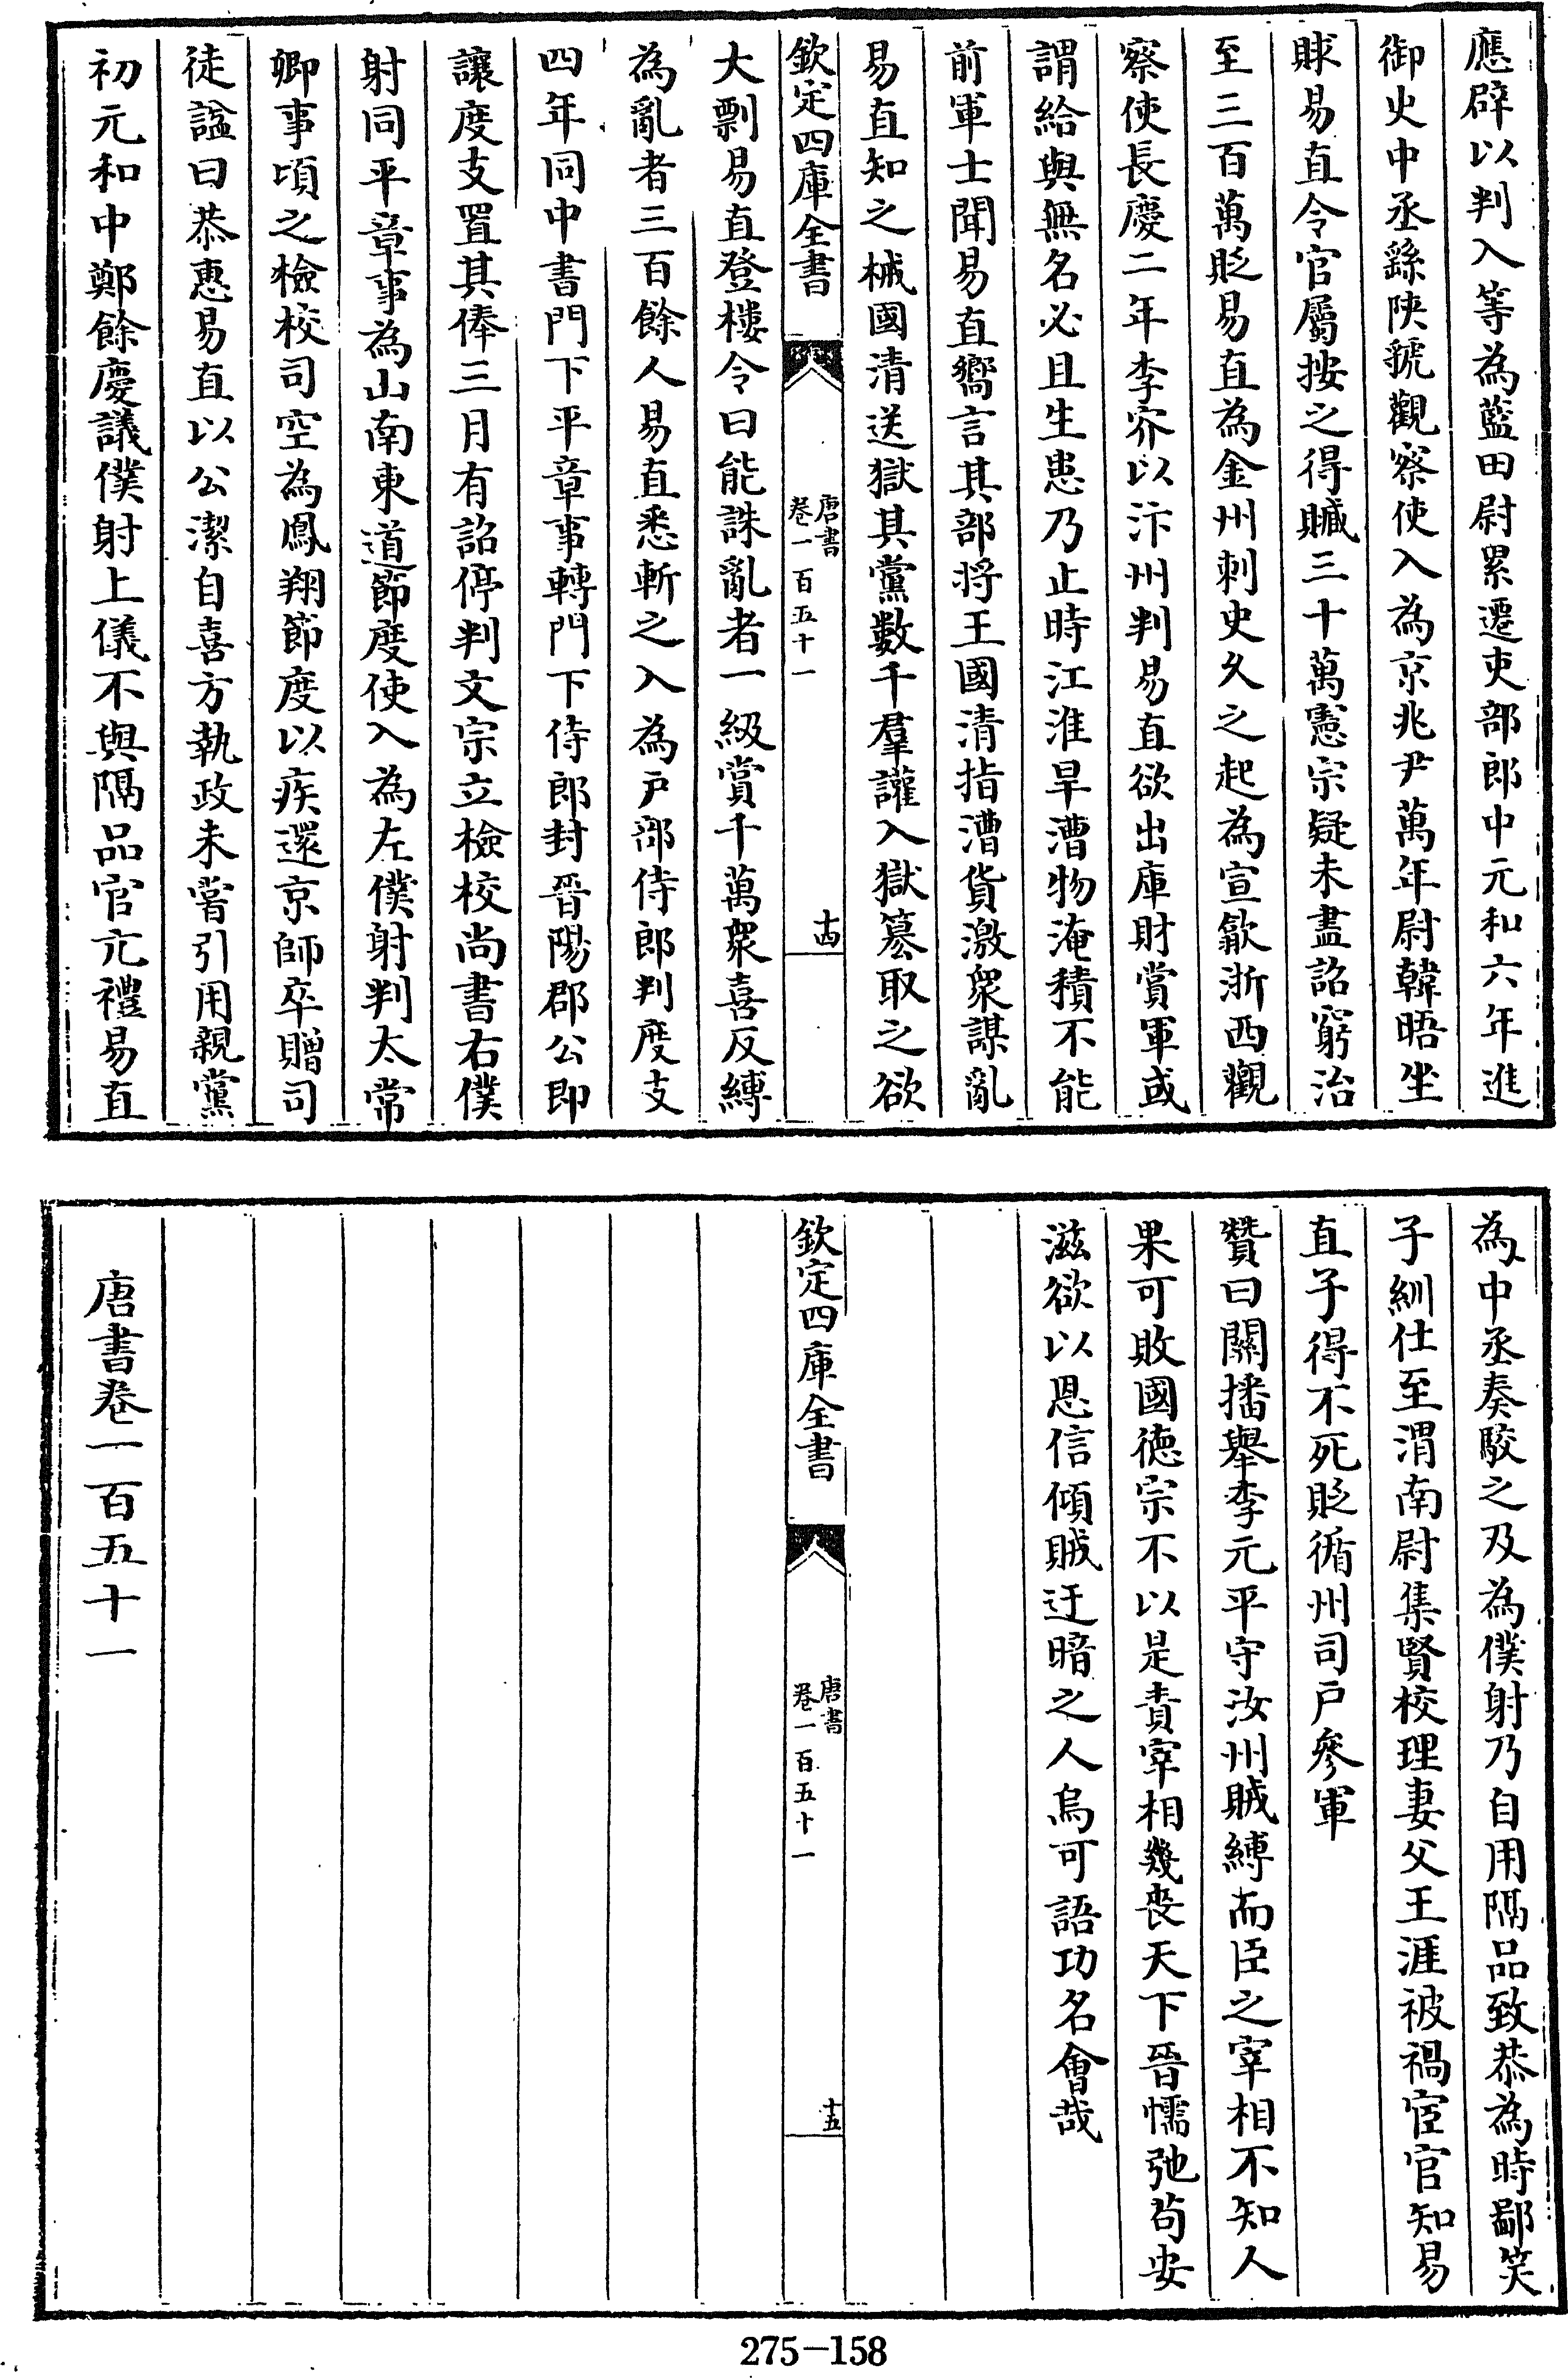 應辟以判入等為藍田尉累遷吏部郎中元和六年進
御史中丞繇陜虢觀察使入為京兆尹萬年尉韓晤坐
賕易直令官屬按之得贓三十萬憲宗疑未盡詔窮治
至三百萬貶易直為金州刺史久之起為宣歙浙西觀
察使長慶二年李㝏以汴州判易直欲出庫財賞軍或
謂給與無名必且生患乃止時江淮旱漕物淹積不能
前軍士聞易直嚮言其部將王國清指漕貨激衆謀亂
易直知之械國清送獄其黨數千羣讙入獄簒取之欲
欽定四庫全書
唐書
卷一百五十一
十四
大剽易直登樓令曰能誅亂者一級賞千萬衆喜反縛
為亂者三百餘人易直悉斬之入為戶部侍郎判度支
四年同中書門下平章事轉門下侍郎封晉陽郡公即
讓度支置其俸三月有詔停判文宗立檢校尚書右僕
射同平章事為山南東道節度使入為左僕射判太常
卿事頃之檢校司空為鳳翔節度以疾還京師卒贈司
徒諡曰恭惠易直以公潔自喜方執政未嘗引用親黨
初元和中鄭餘慶議僕射上儀不與隔品官亢禮易直
為中丞奏駮之及為僕射乃自用隔品致恭為時鄙笑
子紃仕至渭南尉集賢校理妻父王涯被禍宦官知易
直子得不死貶循州司戶參軍
贊曰關播舉李元平守汝州賊縛而臣之宰相不知人
果可敗國德宗不以是責宰相幾喪天下晉懦弛茍安
滋欲以恩信傾賊迂暗之人烏可語功名會哉
欽定四庫全書
唐書
卷一百五十一
十五
唐書卷一百五十一
275-158